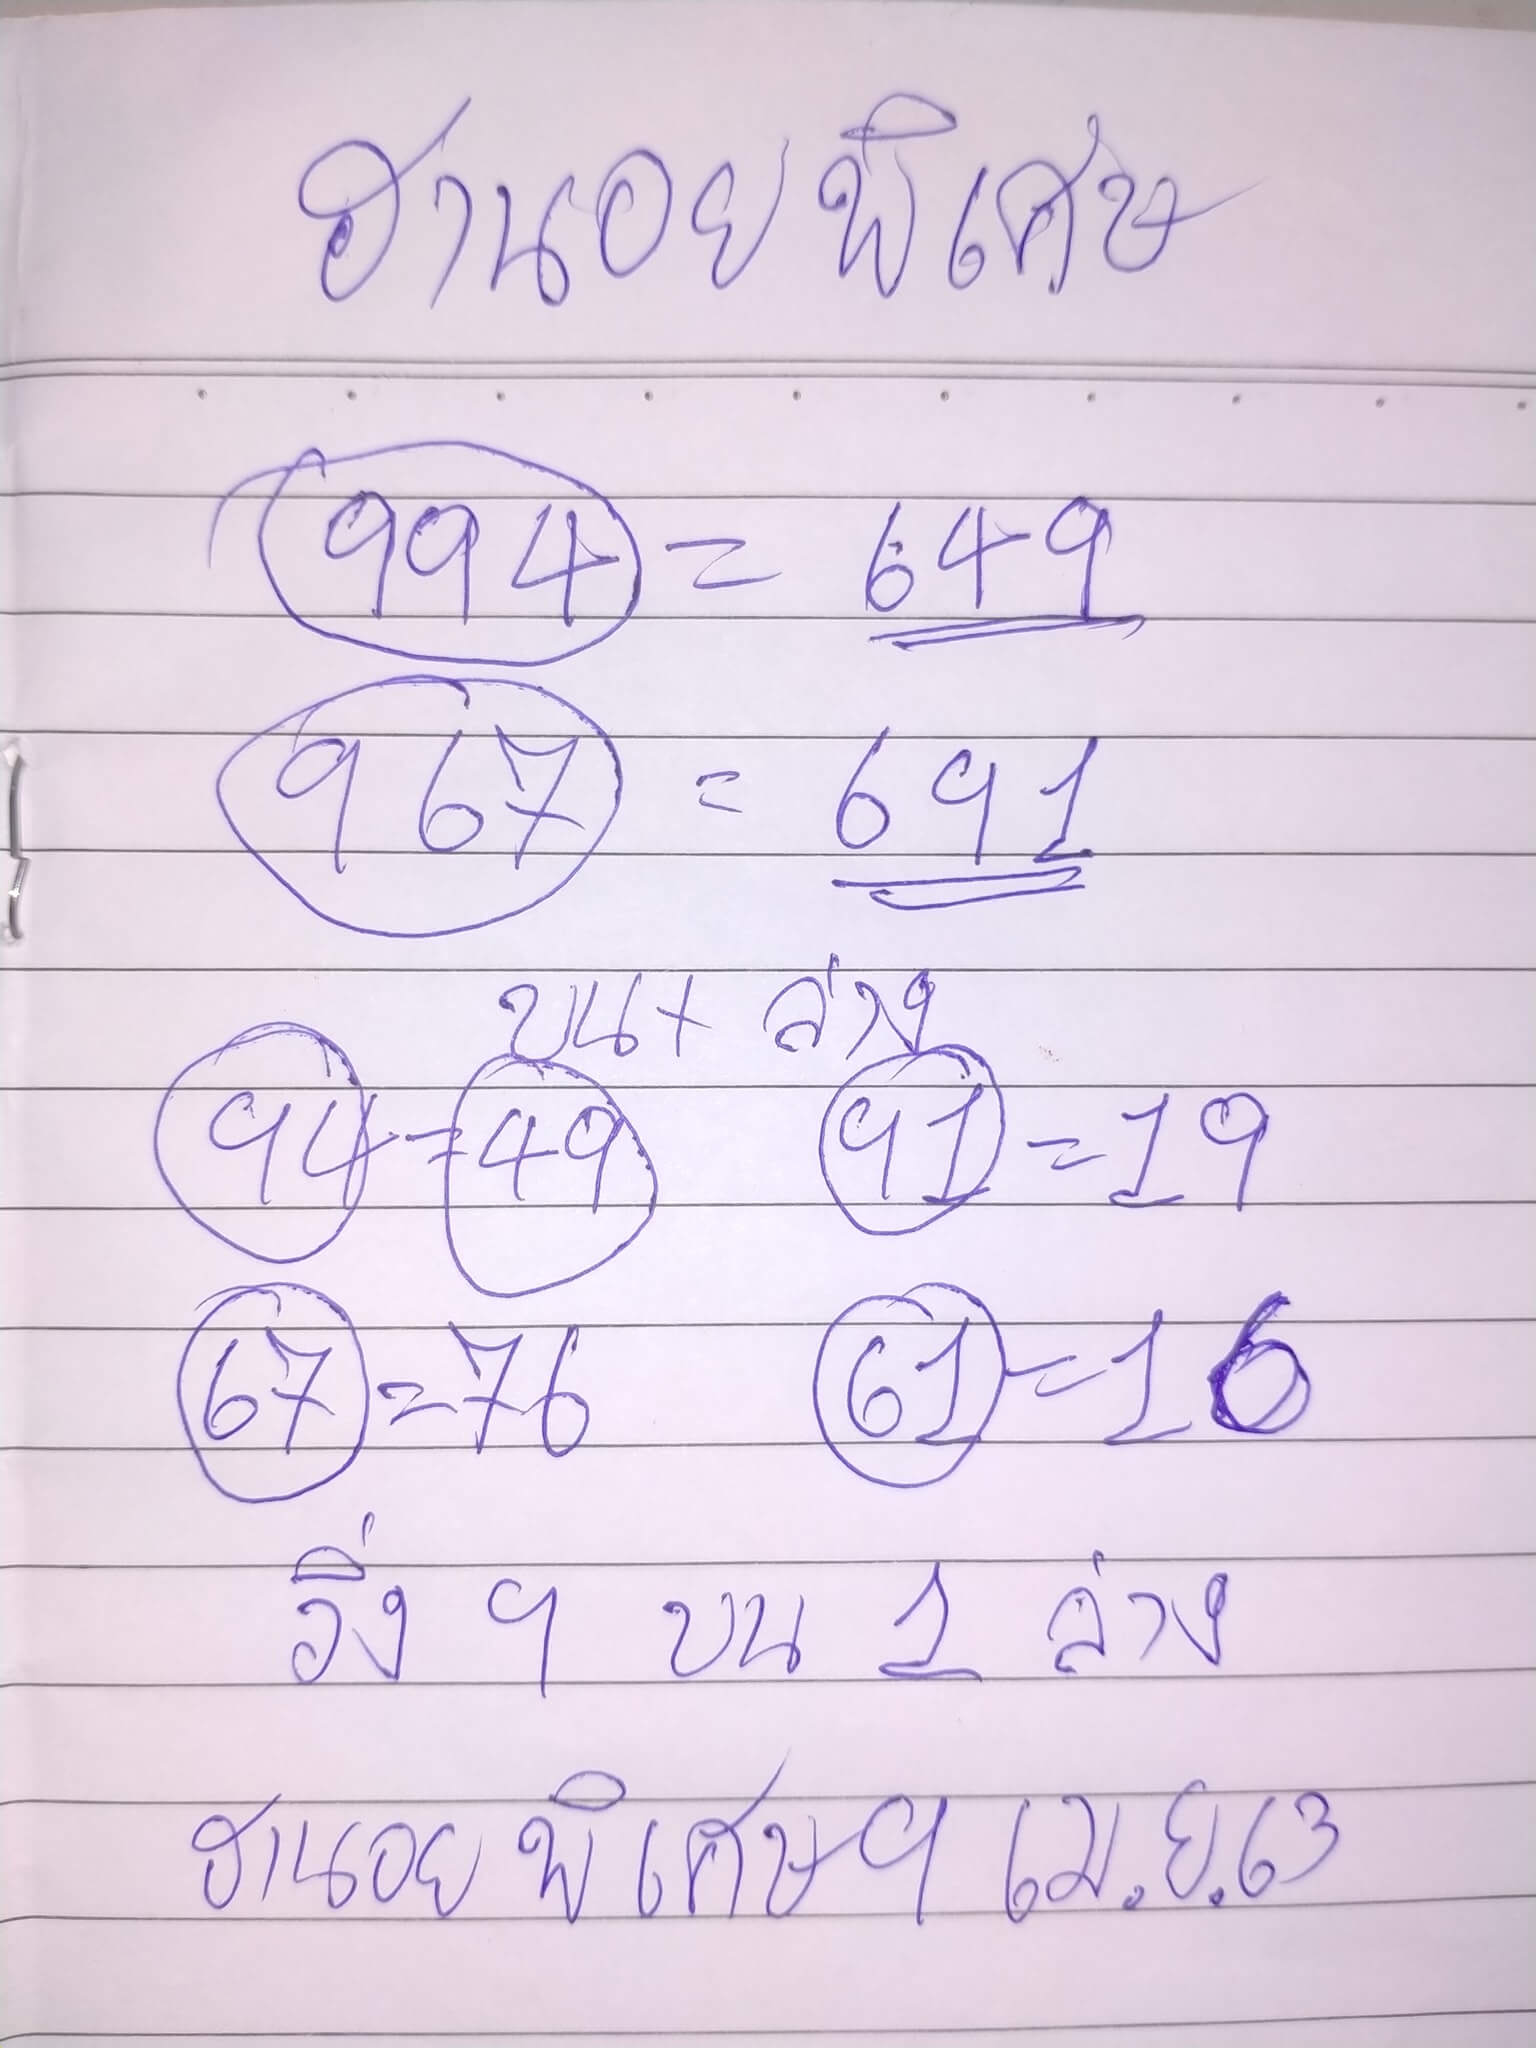 ฮานอยพิเศษ
994 = 649
967 = 691
บน + ล่าง
94 = 49 91 = 19
67 = 76 61 = 16
วิ่ง 9 บน 1 ล่าง
ฮานอยพิเศษ 9 เม.ย.63